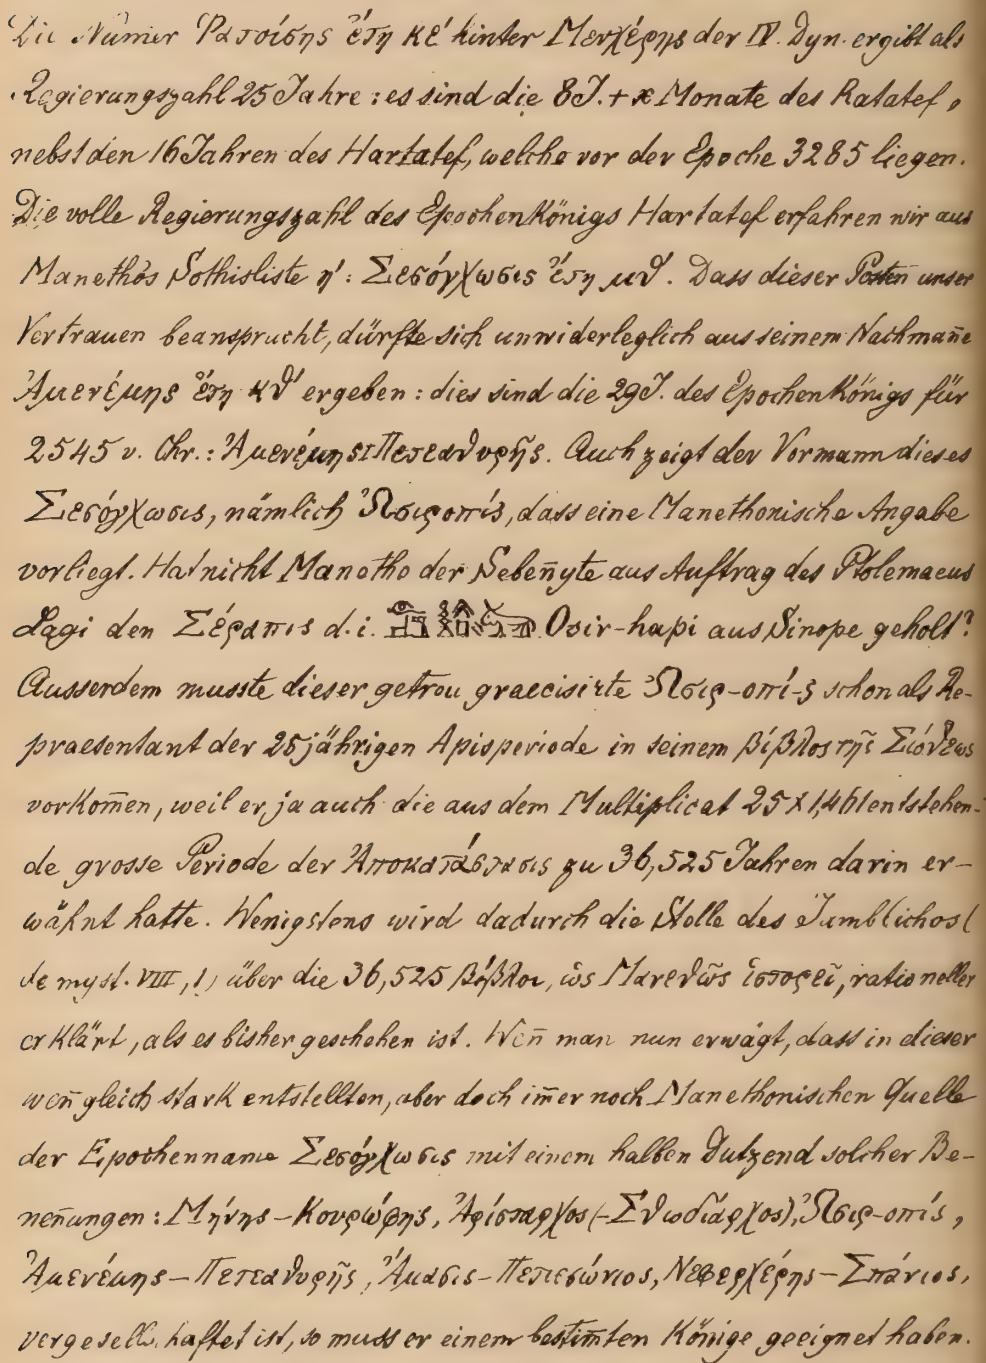 Die Numer Ρατοίσης ἔτη κέ hinter Μενχέρης der IV. Dyn. ergibt als
Regierungszahl 25 Jahre: es sind die 8 J. + x Monate des Ratatef,
nebst den 16 Jahren des Hartatef, welche vor der Epoche 3285 liegen.
Die volle Regierungszahl des Epochenkönigs Hartatef erfahren wir aus
Manethós Sothisliste ή: Σεσόγχωσις ἔτη μθ. Dass dieser Posten unser
Vertrauen beansprucht, dürfte sich unwiderleglich aus seinem Nachman̄e
Ἀμενέμης ἔτη κθ' ergeben: dies sind die 29 J. des Epochenkönigs für
2545 v. Chr.: Ἀμενέμης I Πετεαθυρῆς. Auch zeigt der Vormann dieses
Σεσόγχωσις, nämlich Ὠσιροπίς, dass eine Manethonische Angabe
vorliegt. Hat nicht Manetho der Seben̄yte aus Auftrag des Ptolemaeus
Lagi den Σέραπις d. i. Osir-hapi aus Sinope geholt?
Ausserdem musste dieser getreu graecisirte Ὠσιρ-οπί-ς schon als Re-
praesentant der 25jährigen Apisperiode in seinem βίβλος τῆς Σώθεως
vorkom̄en, weil er ja auch die aus dem Multiplicat 25 x 1,461 entstehen-
de grosse Periode der Ἀποκατάστασις zu 36,525 Jahren darin er-
wähnt hatte. Wenigstens wird dadurch die Stelle des Jamblichos (
de myst. VIII, 1) über die 36,525 βίβλοι, ὡς Μανεθῶς ἱστορεῖ, rationeller
erklärt, als es bisher geschehen ist. Wen̄ man nun erwägt, dass in dieser
wen̄gleich stark entstellten, aber doch im̄er noch Manethonischen Quelle
der Epochenname Σεσόγχωσις mit einem halben Dutzend solcher Be-
nen̄ungen: Μήνης - Κουρώφης, Ἀρίσταρχος (- Σθωδιάρχος), Ὠσιρ-οπίς,
Ἀμενέμης - Πετεαθυρῆς, Ἄμασις - Πετεσώνιος, Νεφερχέρης - Σπάνιος,
vergesellschaftet ist, so muss er einem bestim̄ten Könige geeignet haben.